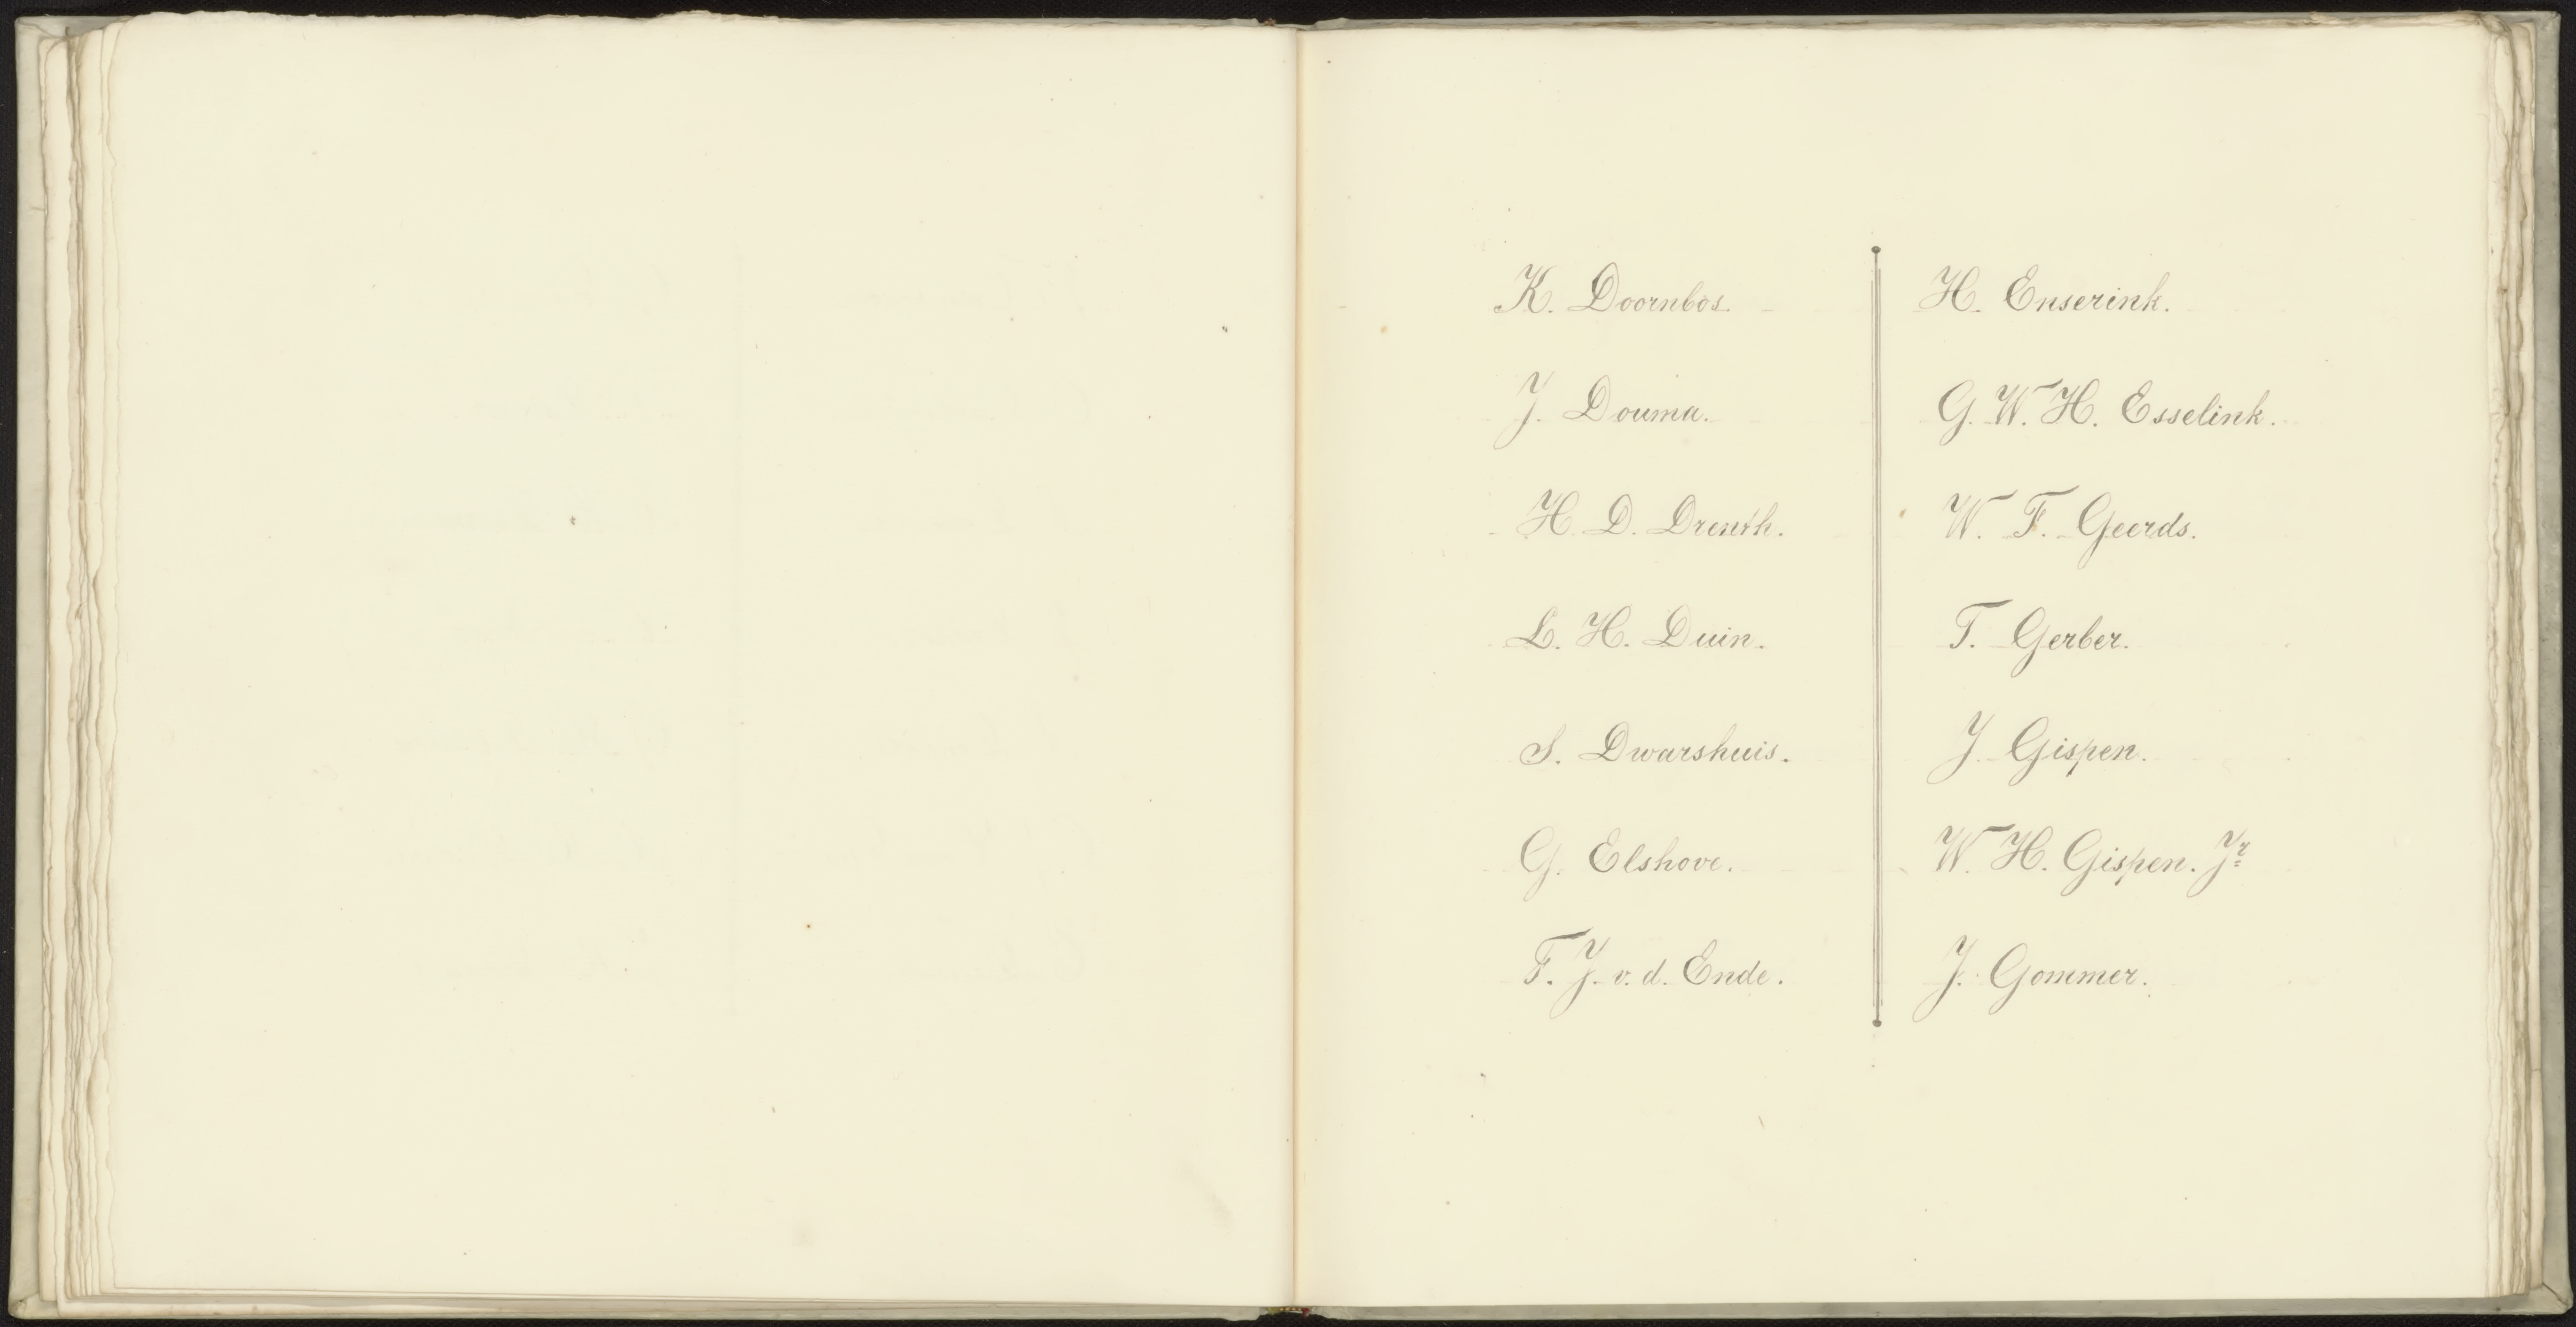 K. Doornbos.
J. Douma.
H. D. Drenth.
L. H. Duin.
S. Dwarshuis.
G. Elshove.
F. J. v. d. Ende.
H. Enserink.
G. W. H. Esselink.
W. F. Geerds.
T. Gerber.
J. Gispen.
W. H. Gispen. Jr
J. Gommer.